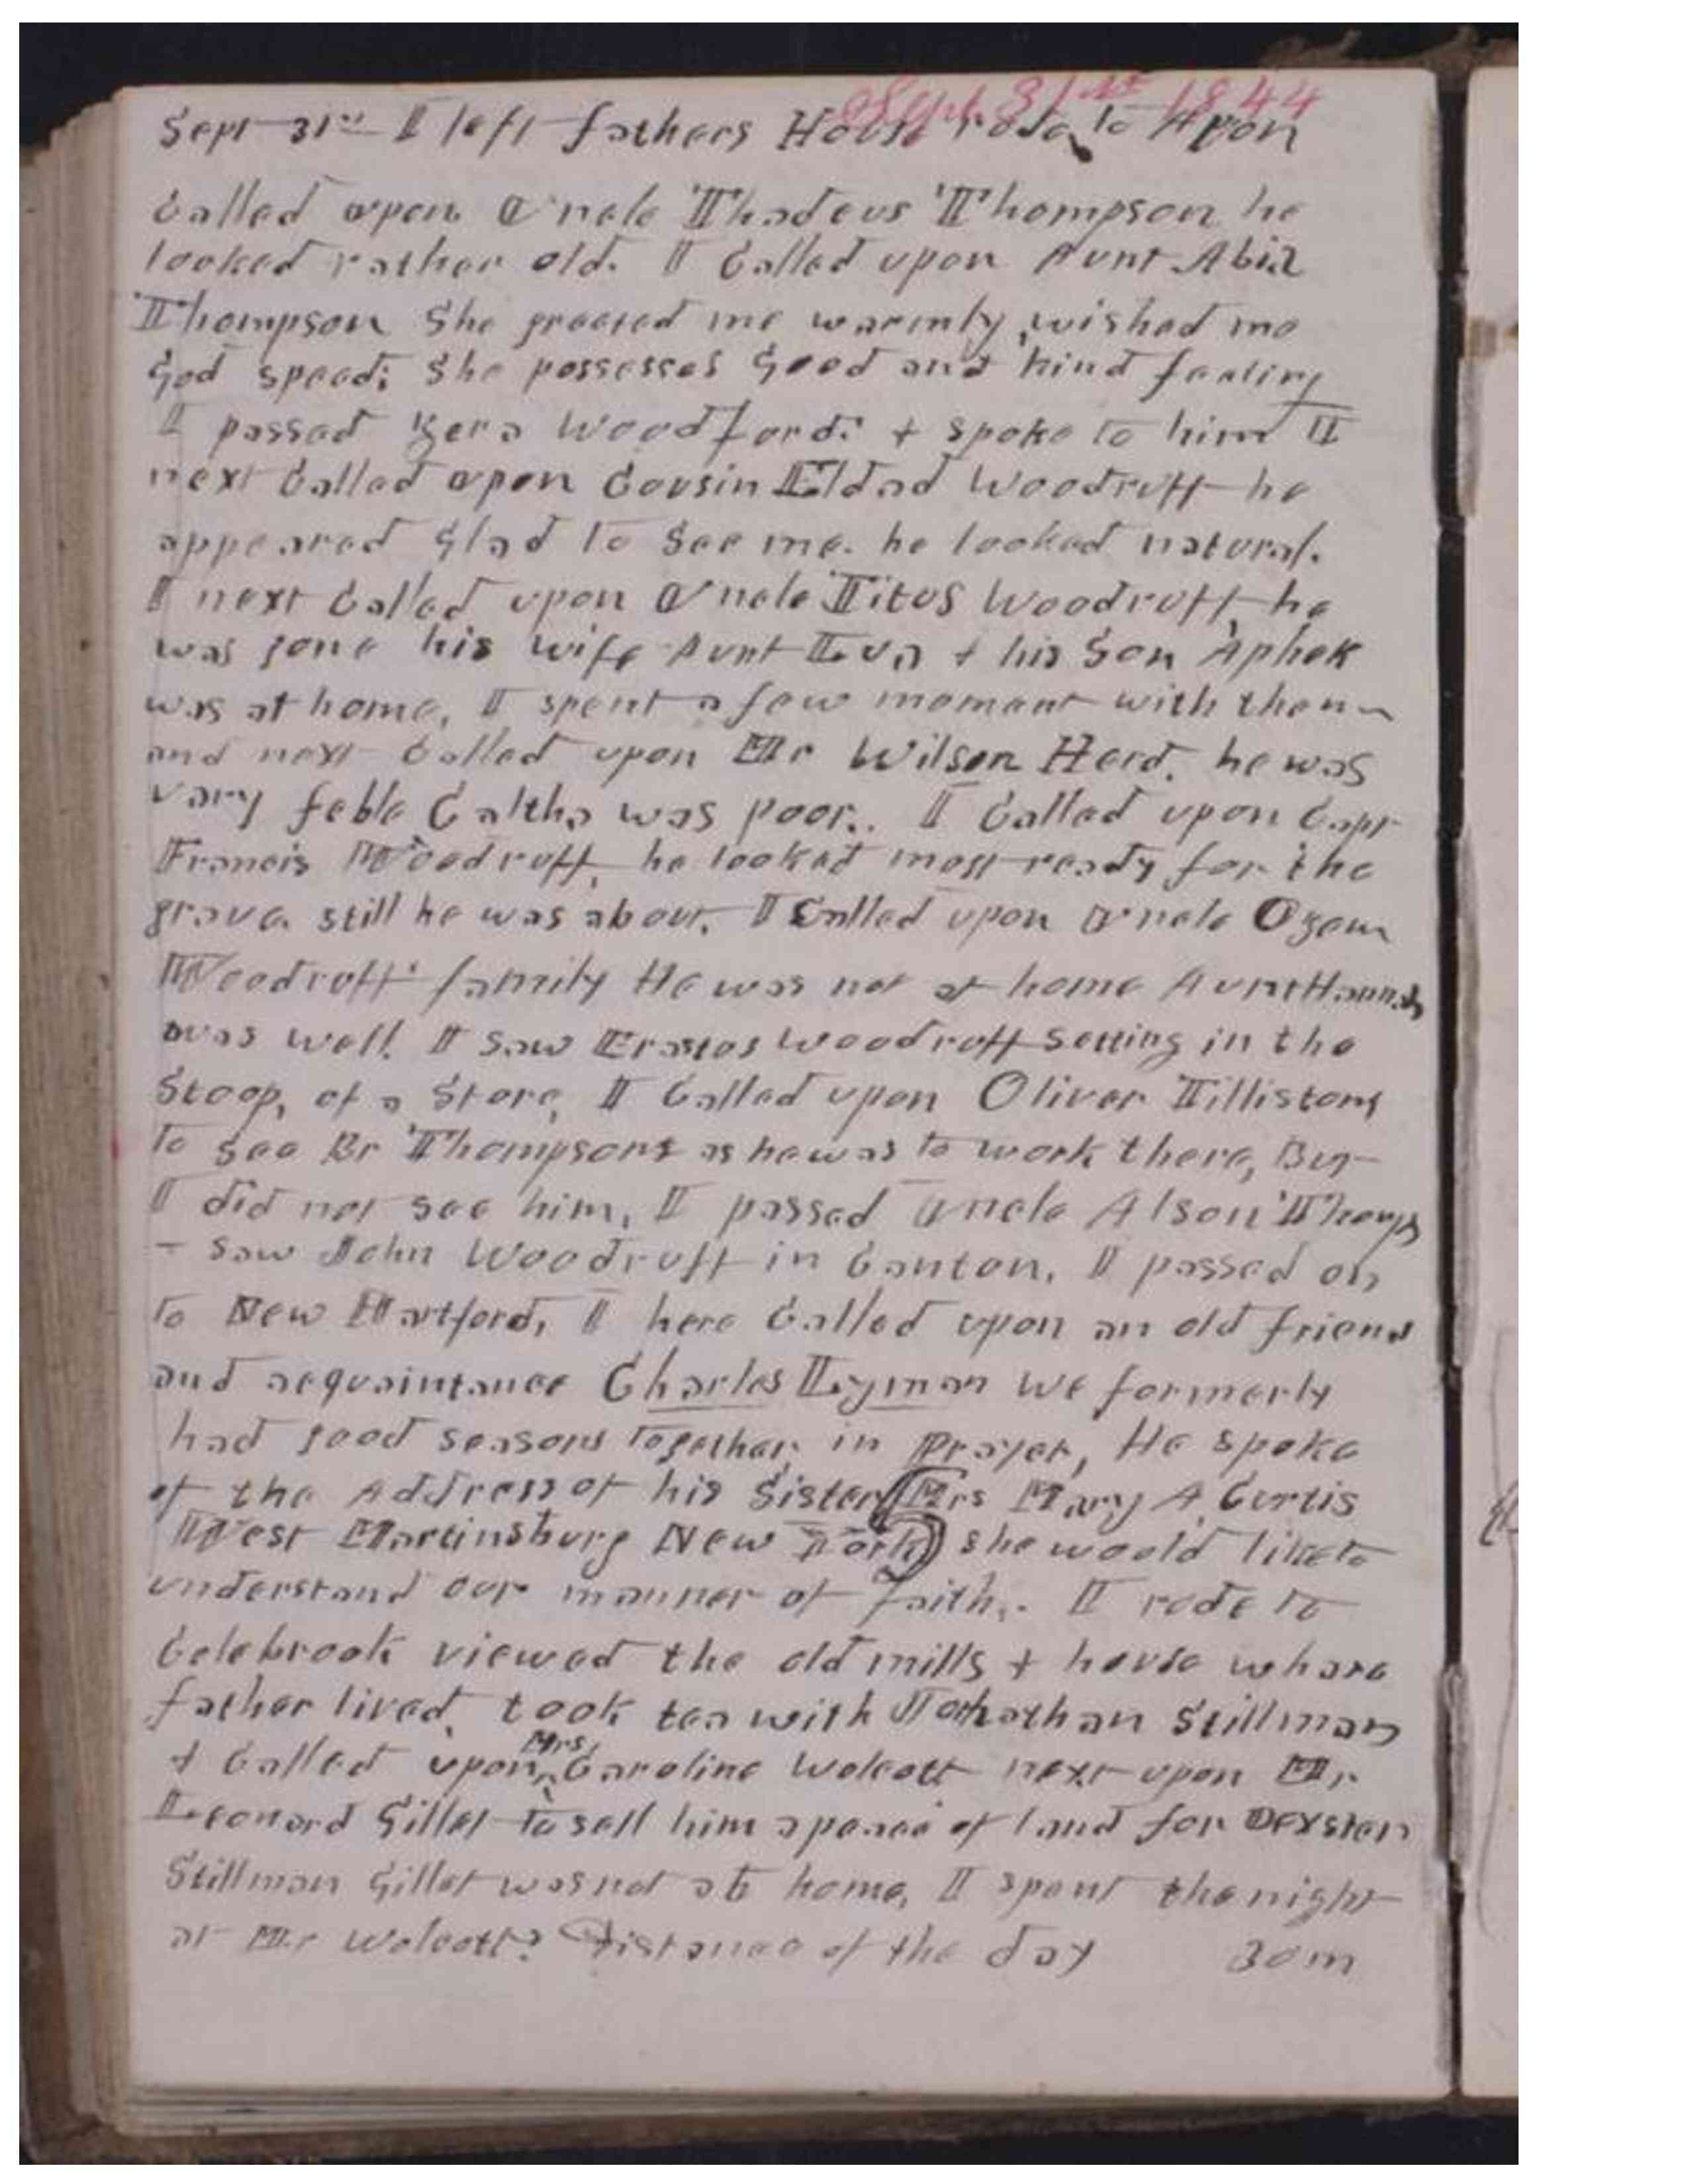 Sept. 31st 1844
Sept 31st I left fathers House rode to Avon
Called upon Uncle Thadeus Thompson he
looked rather old. I Called upon Aunt Abia
Thompson She greeted me warmly, wished me
God speed; She possesses Good and kind feeling
I passed Zera Woodford. + spoke to him I
next Called upon Cousin Eldad Woodruff he
appeared Glad to See me. he looked natural.
I next Called upon Uncle Titus Woodruff, he
was gone his wife Aunt Lura + his Son Aphek
was at home, I spent a few moment with them
and next Called upon Mr Wilson Herd. he was
vary feble Caltha was poor.. I Called upon Capt
Francis Woodruff, he looked most ready for the
grave. still he was about. I Called upon Uncle Ozem
Woodruff family He was not at home Aunt Hannah
was well. I Saw Erastus Woodruff Setting in the
Stoop, of a Store, I Called upon Oliver Tillistons
to See Br Thompsons as he was to work there, But
I did not see him, I passed Uncle Alson Thomps
- saw John Woodruff in Canton. I passed on
to New Hartford, I here Called upon an old friend
and acquaintance Charles Lyman We formerly
had good seasons together in Prayer, He spoke
of the Address of his Sister (Mrs Mary A. Curtis
West Martinsburg New York) she would like to
understand our manner of faith,. I rode to
Colebrook viewed the old mills + house whare
father lived, took tea with Jonathan Stillman
+ Called upon Mrs, Caroline Wolcott next upon Mr.
Leonard Gillet to sell him a peace of land for Dexster
Stillman Gillet was not at home, I spent the night
at Mr Wolcotts Distance of the day 30 m